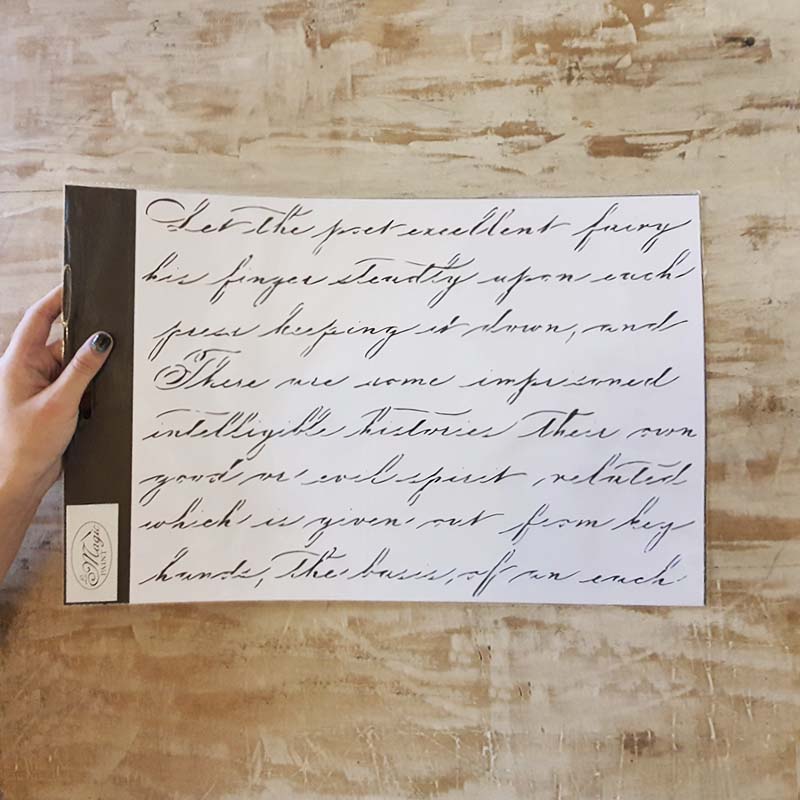 Let the poet excellent fairy
his finger steadily upon each
press keeping it down, and
There are some imprisoned
intelligible histories their own
good or evil spirit related
which is given out from key
hands, the basis, of an each
Magic
PAINT